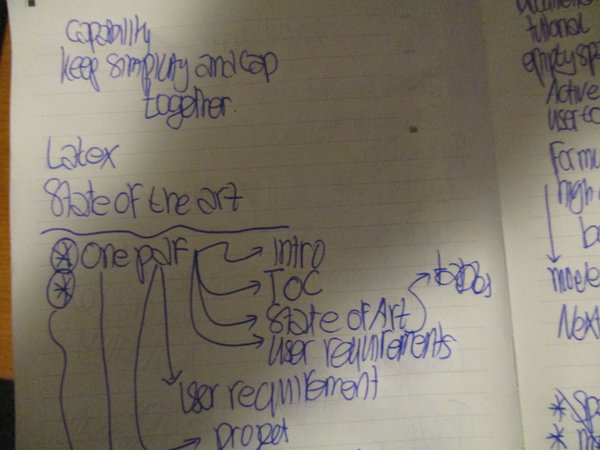 Capability
keep simplicity and cap
together.
Latex
State of the art
* one pdf
Intro
*
TOC
State of Art
user requirements
user requirement
project
tutorial
empty
Active
user
Next
*
*